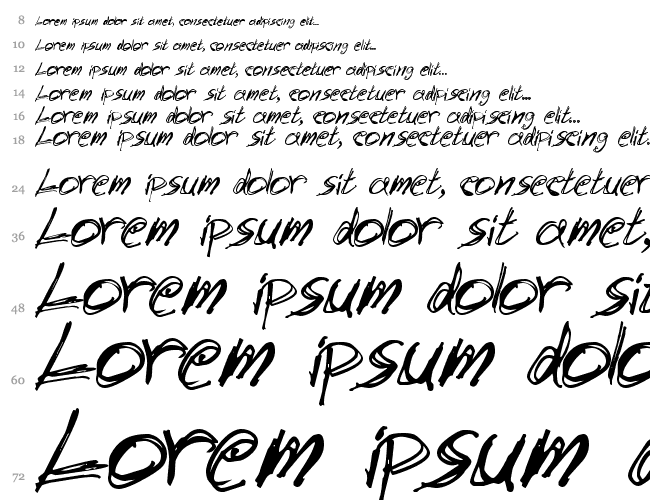 8 Lorem ipsum dolor sit amet, consectetuer adipiscing elit...
10 Lorem ipsum dolor sit amet, consectetuer adipiscing elit...
12 Lorem ipsum dolor sit amet, consectetuer adipiscing elit...
14 Lorem ipsum dolor sit amet, consectetuer adipiscing elit...
16 Lorem ipsum dolor sit amet, consectetuer adipiscing elit...
18 Lorem ipsum dolor sit amet, consectetuer adipiscing elit.
24 Lorem ipsum dolor sit amet, consectetuer
36 Lorem ipsum dolor sit amet,
48 Lorem ipsum dolor sit
60 Lorem ipsum dolo
72 Lorem ipsum d